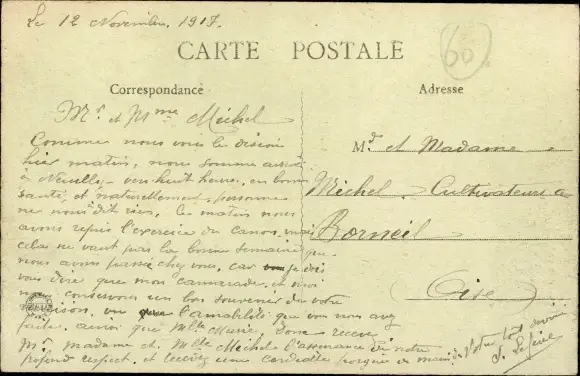 Le 12 Novembre 1917.
CARTE POSTALE
60
Correspondance
Adresse
Mr et Mme Michel
Comme nous vous le dision
hier matin, nous somme arrivé
à Neuilly vers huit heures, en bonne
santé, et naturellement, personne
ne nous dit rien. Ce matin nous
avons repris l'exercice du canon, mais
cela ne vaut pas la bonne semaine que
nous avons passée chez vous, car je dois
vous dire que mon camarade et moi
nous conservons un bon souvenir de votre
maison, vu l'amabilité que vous nous avez
faite. ainsi que Mlle Marie. Donc recevez
Mr madame et Mlle Michel l'assurance de notre
profond respect. et recevez une cordialle poignée de main de
Votre tout dévoué
Mr et Madame
Michel. Cultivateurs a
Borneil
(Oise)